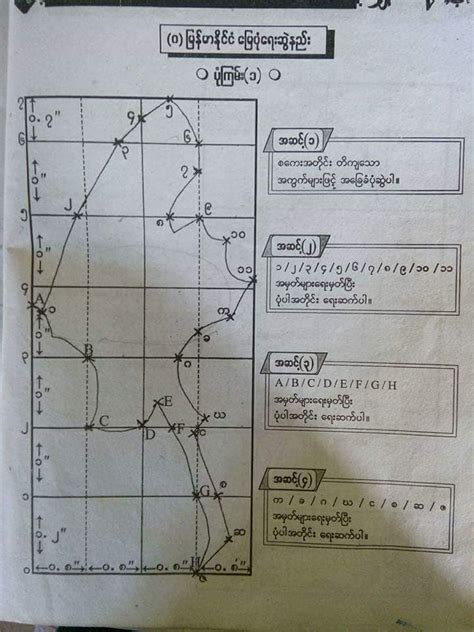 (၈) မြန်မာနိုင်ငံ မြေပုံရေးဆွဲနည်း
ပုံကြမ်း(၁)
အဆင့်(၁)
စကေးအတိုင်း တိကျသော
အကွက်များဖြင့် အခြေခံပုံဆွဲပါ။
အဆင့်(၂)
၁/၂/၃/၄/၅/၆/၇/၈/၉/၁၀/၁၁
အမှတ်များရေးမှတ်ပြီး
ပုံပါအတိုင်း ရေးဆက်ပါ။
အဆင့်(၃)
A/B/C/D/E/F/G/H
အမှတ်များရေးမှတ်ပြီး
ပုံပါအတိုင်းရေးဆက်ပါ။
အဆင့်(၄)
က / ခ / ဂ / ဃ / င / စ / ဆ / ဇ
အမှတ်များရေးမှတ်ပြီး
ပုံပါအတိုင်းရေးဆက်ပါ။
၇
၀.၇"
၅
၄
၆
၃
၆
၁"
၇
၅
၂
၈
၉
၁၀
၁"
၁၁
၄
A
၁
က
၁"
ခ
၃
B
ဂ
၁"
E
ဃ
၂
C
D
F
င
၁"
၁
G
စ
၁.၂"
ဆ
၀
၀.၈"
၀.၈"
၀.၈"
H
ဇ
၀.၈"